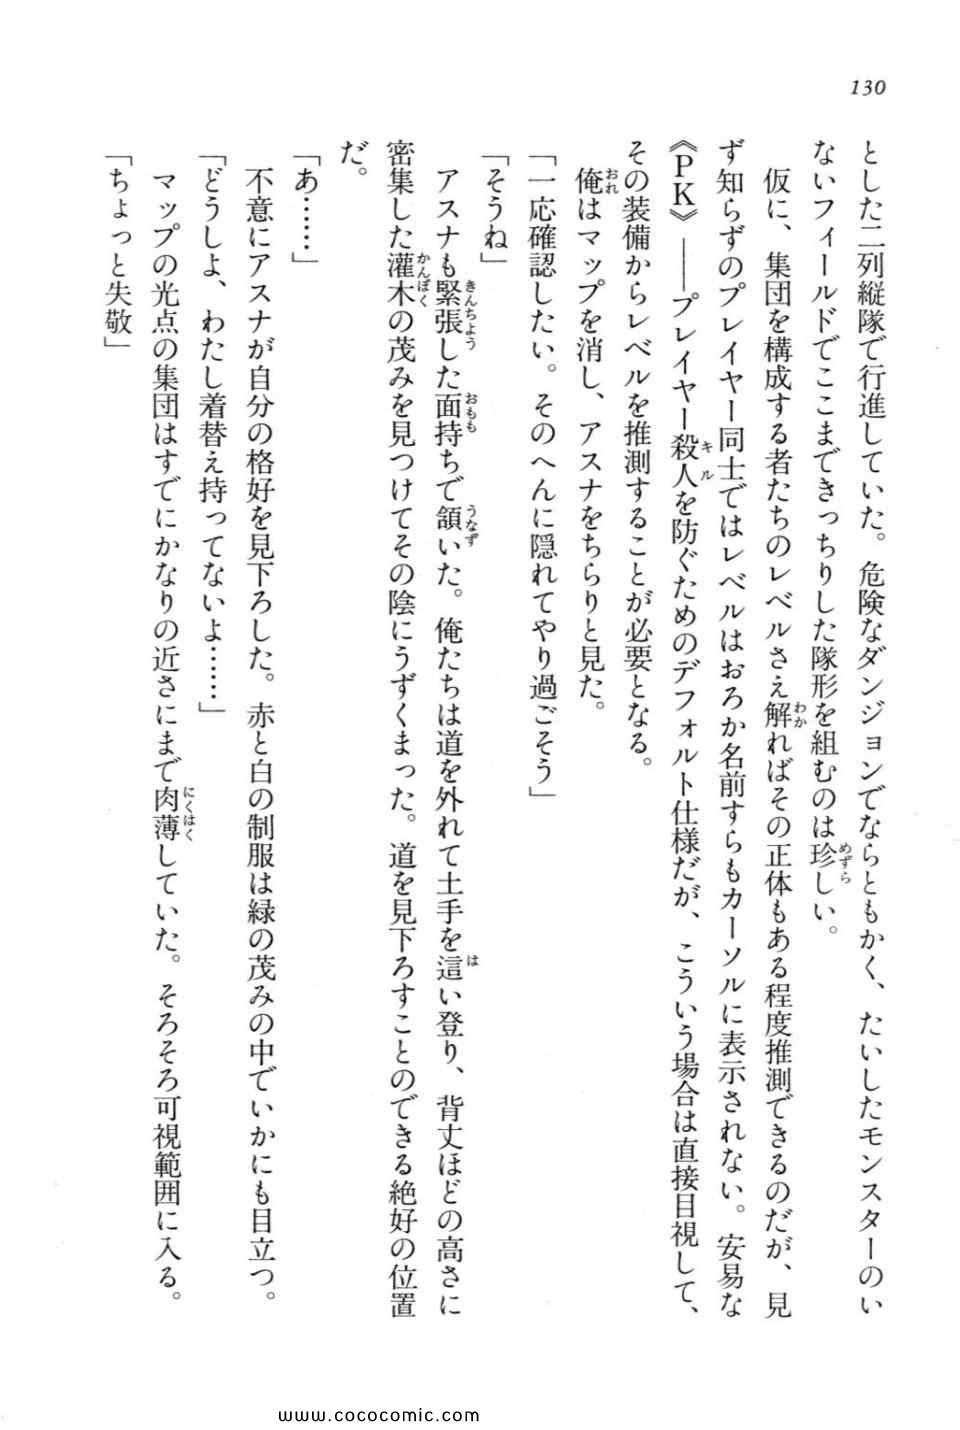 130
とした二列縦隊で行進していた。危険なダンジョンでならともかく、たいしたモンスターのい
ないフィールドでここまできっちりした隊形を組むのは珍しい。
仮に、集団を構成する者たちのレベルさえ解ればその正体もある程度推測できるのだが、見
ず知らずのプレイヤー同士ではレベルはおろか名前すらもカーソルに表示されない。安易な
《PK》――プレイヤー殺人を防ぐためのデフォルト仕様だが、こういう場合は直接目視して、
その装備からレベルを推測することが必要となる。
俺はマップを消し、アスナをちらりと見た。
「一応確認したい。そのへんに隠れてやり過ごそう」
「そうね」
アスナも緊張した面持ちで頷いた。俺たちは道を外れて土手を這い登り、背丈ほどの高さに
密集した灌木の茂みを見つけてその陰にうずくまった。道を見下ろすことのできる絶好の位置
だ。
「あ……」
不意にアスナが自分の格好を見下ろした。赤と白の制服は緑の茂みの中でいかにも目立つ。
「どうしよ、わたし着替え持ってないよ……」
マップの光点の集団はすでにかなりの近さにまで肉薄していた。そろそろ可視範囲に入る。
「ちょっと失敬」
www.cococomic.com